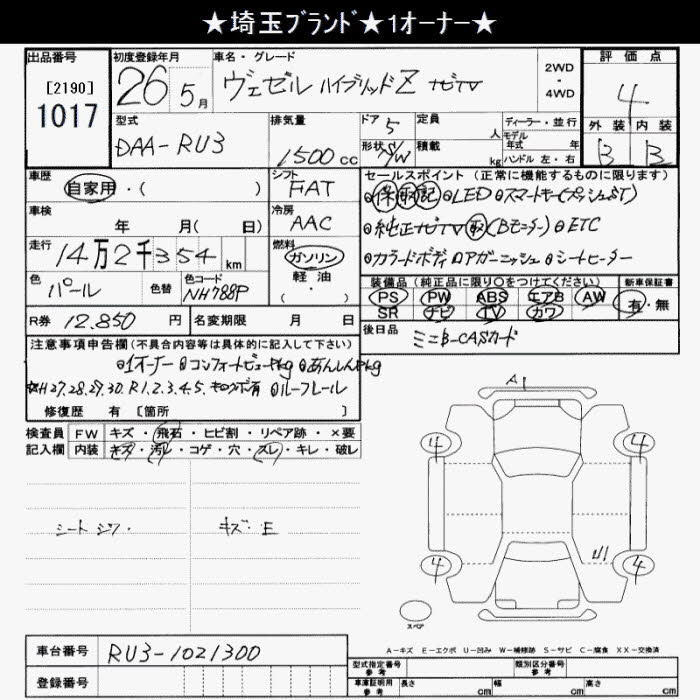 ★埼玉ﾌﾞﾗﾝﾄﾞ★1オーナー★
出品番号 初度登録年月 車名・グレード 2WD・4WD 評価点
[2190]
1017
26年 5月 ヴェゼル ハイブリッドZ ナビTV 4
型式 排気量 ドア 5 定員 人 ディーラー・並行 外装 内装
DAA-RU3 1500cc 形状 S/W 積載 kg モデル年式 年 B B
ハンドル 左・右
車歴 シフト セールスポイント(正常に機能するものに限ります)
自家用・( ) FAT 保 取 記 LED スマートキー(プッシュST)
車検 冷房
年 月( 日) AAC 純正ナビTV 取(Bモニター) ETC
走行 燃料
14万2千354km ガソリン カラードボディ ロアガーニッシュ シートヒーター
軽・油
色 パール 色替 色コード NH788P 装備品(純正品に限り○をつけてください) 新車保証書
PS PW ABS エアB AW 有・無
SR ナビ TV カワ
R券 12.850円 名変期限 月 日 後日品
ミニB-CASカード
注意事項申告欄(不具合内容等は具体的に記入して下さい)
1オーナー コンフォートビューPkg あんしんPkg
H27.28.29.30.R1.2.3.4.5. キロク簿有 ルーフレール
修復歴 有 [箇所 ]
検査員 FW キズ・飛石・ヒビ割・リペア跡・×要
記入欄 内装 キズ・汚レ・コゲ・穴・スレ・キレ・破レ
A1
4 4
シート シワ. キズ. E
U1
4 4
スペア
A-キズ E-エクボ U-凹み W-補修跡 S-サビ C-腐食 XX-交換済
車台番号 RU3-1021300
型式指定番号 参考 類別区分番号 参考
登録番号 車庫証明用 参考 長さ cm 幅 cm 高さ cm